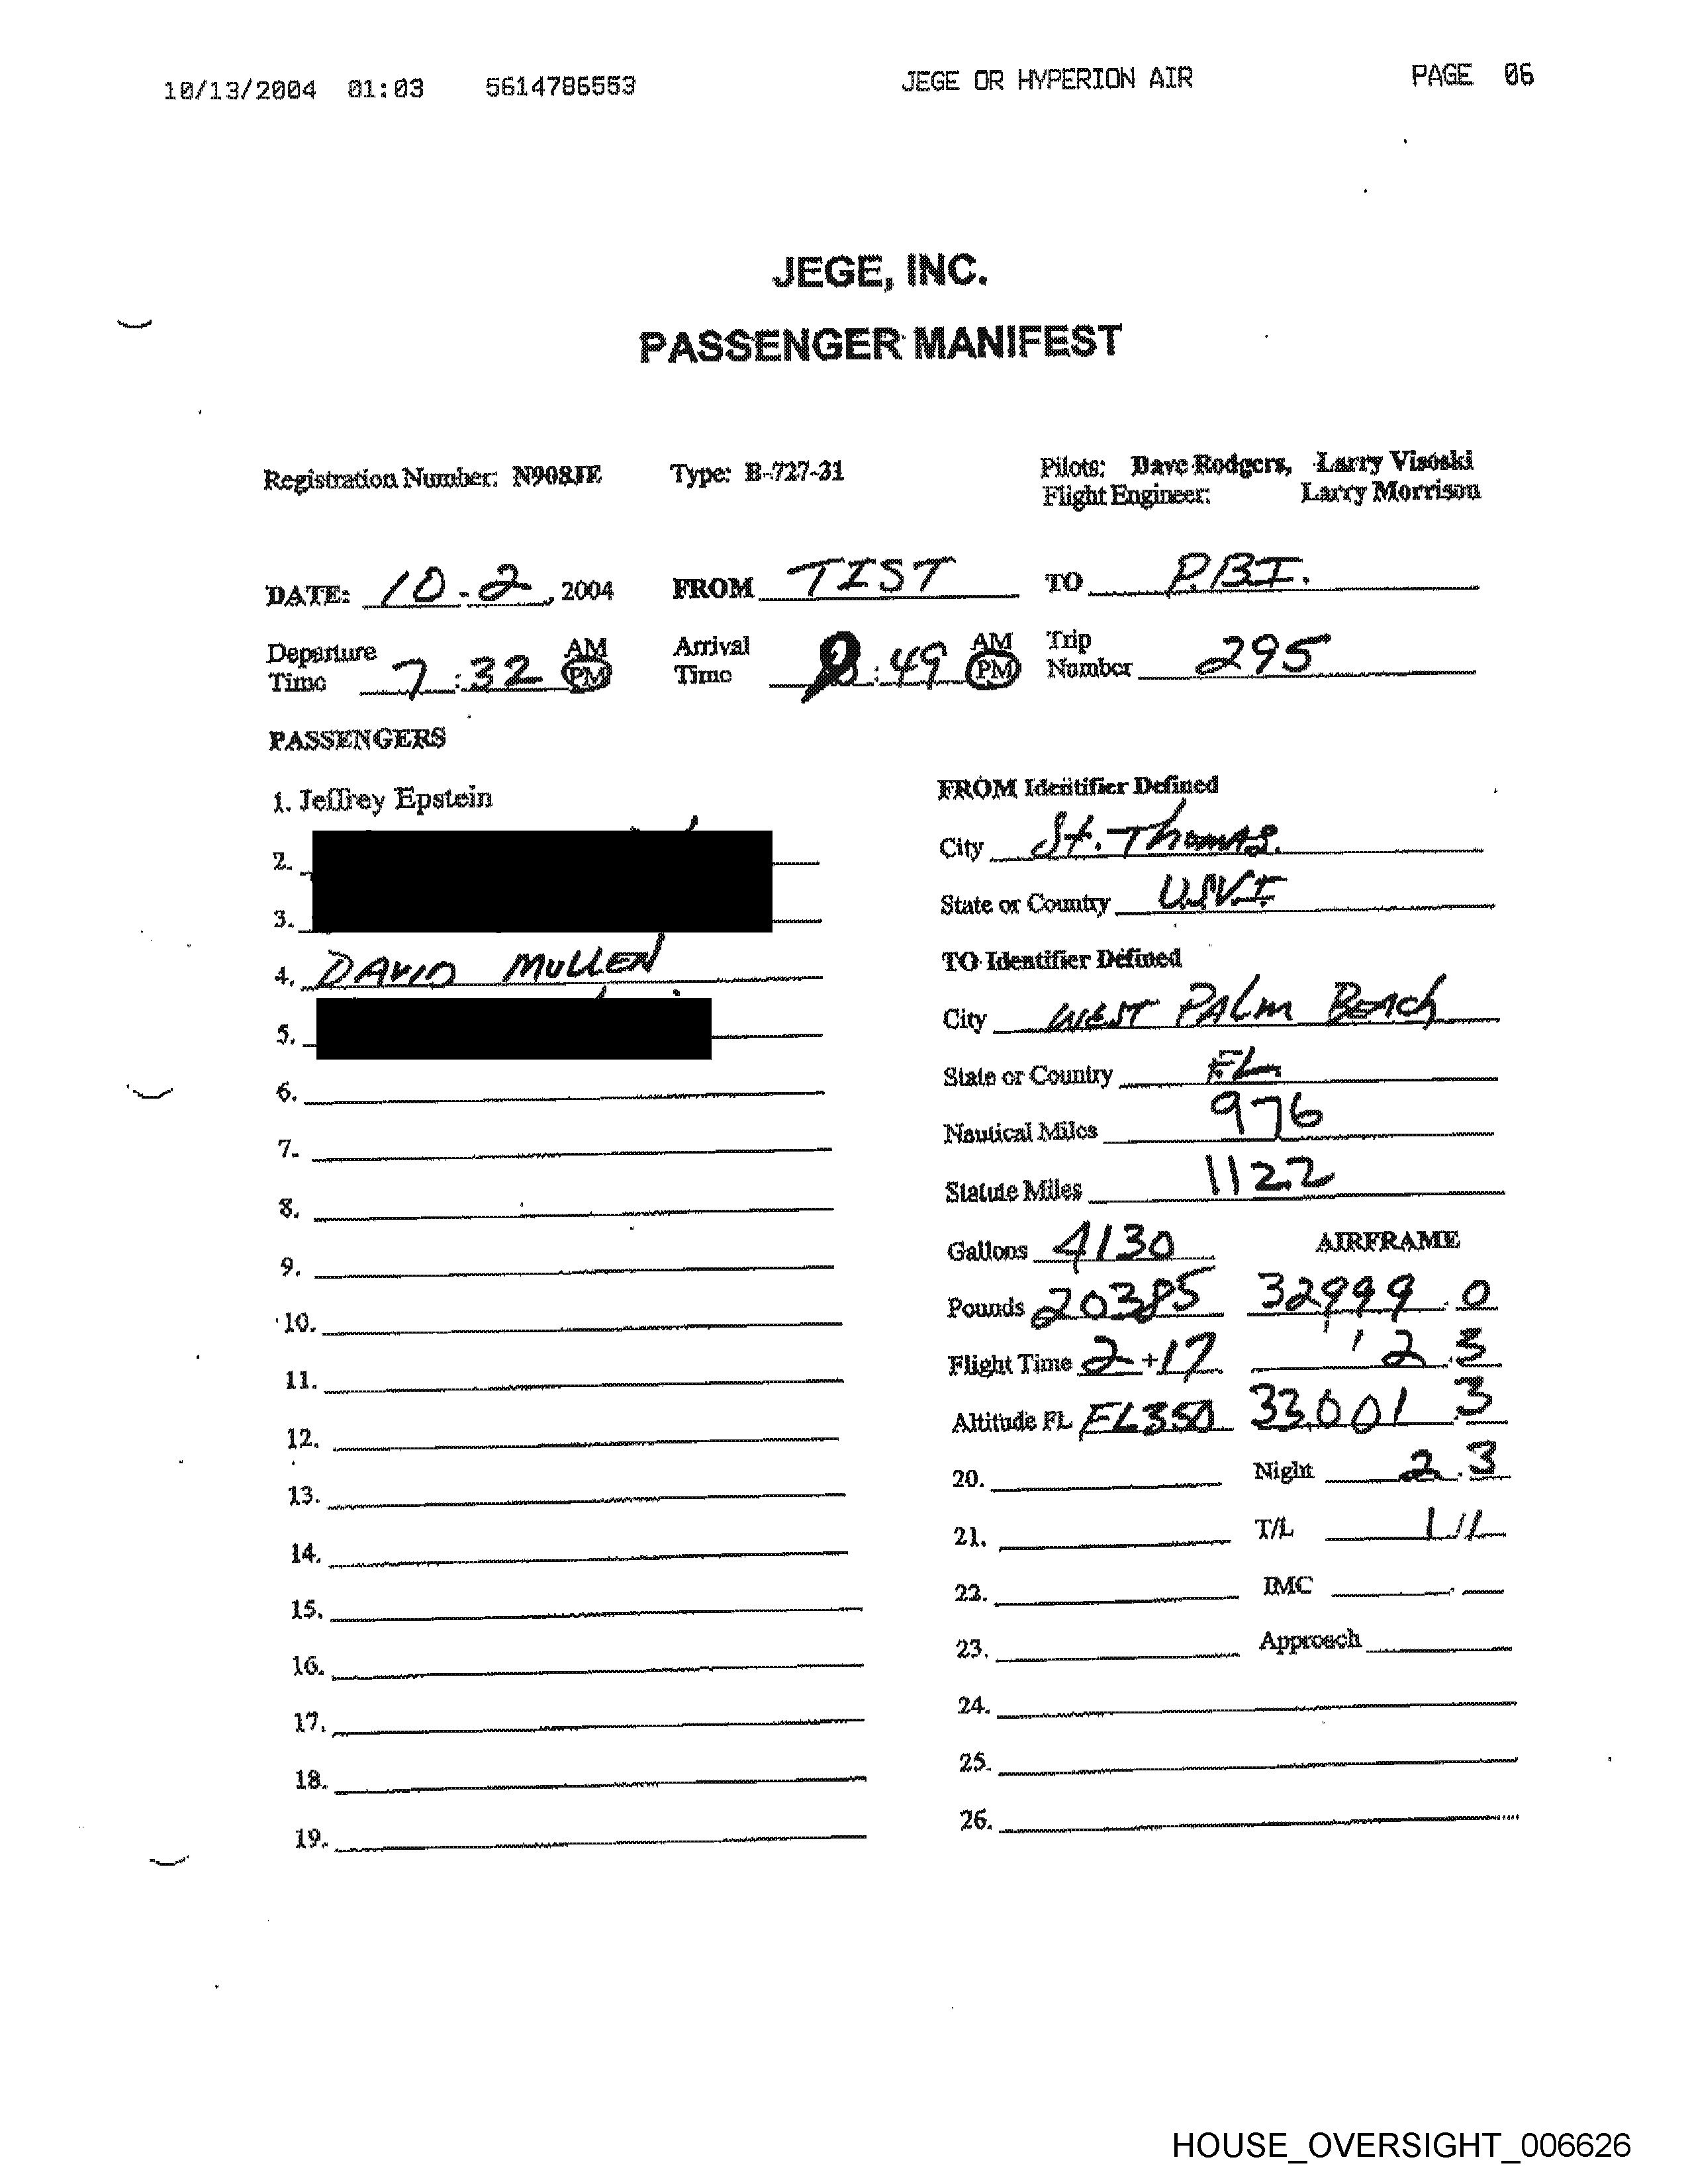 10/13/2004 01:03 5614786553 JEGE OR HYPERION AIR PAGE 06
JEGE, INC.
PASSENGER MANIFEST
Registration Number: N908JE Type: B-727-31 Pilots: Dave Rodgers, Larry Visoski
Flight Engineer: Larry Morrison
DATE: 10-2, 2004 FROM TIST TO P.B.I.
Departure Time 7:32 AM PM Arrival Time :49 AM PM Trip Number 295
PASSENGERS
1. Jeffrey Epstein
2.
3.
4. DAVID MULLEN
5.
6.
7.
8.
9.
10.
11.
12.
13.
14.
15.
16.
17.
18.
19.
FROM Identifier Defined
City St. Thomas.
State or Country U.S.V.I.
TO Identifier Defined
City WEST PALM BEACH
State or Country FL.
Nautical Miles 976
Statute Miles 1122
Gallons 4130 AIRFRAME
Pounds 20385 32,999.0
Flight Time 2+17 2.3
Altitude FL FL350 33,001.3
20. Night 2.3
21. T/L 1/1
22. IMC .
23. Approach
24.
25.
26.
HOUSE_OVERSIGHT_006626